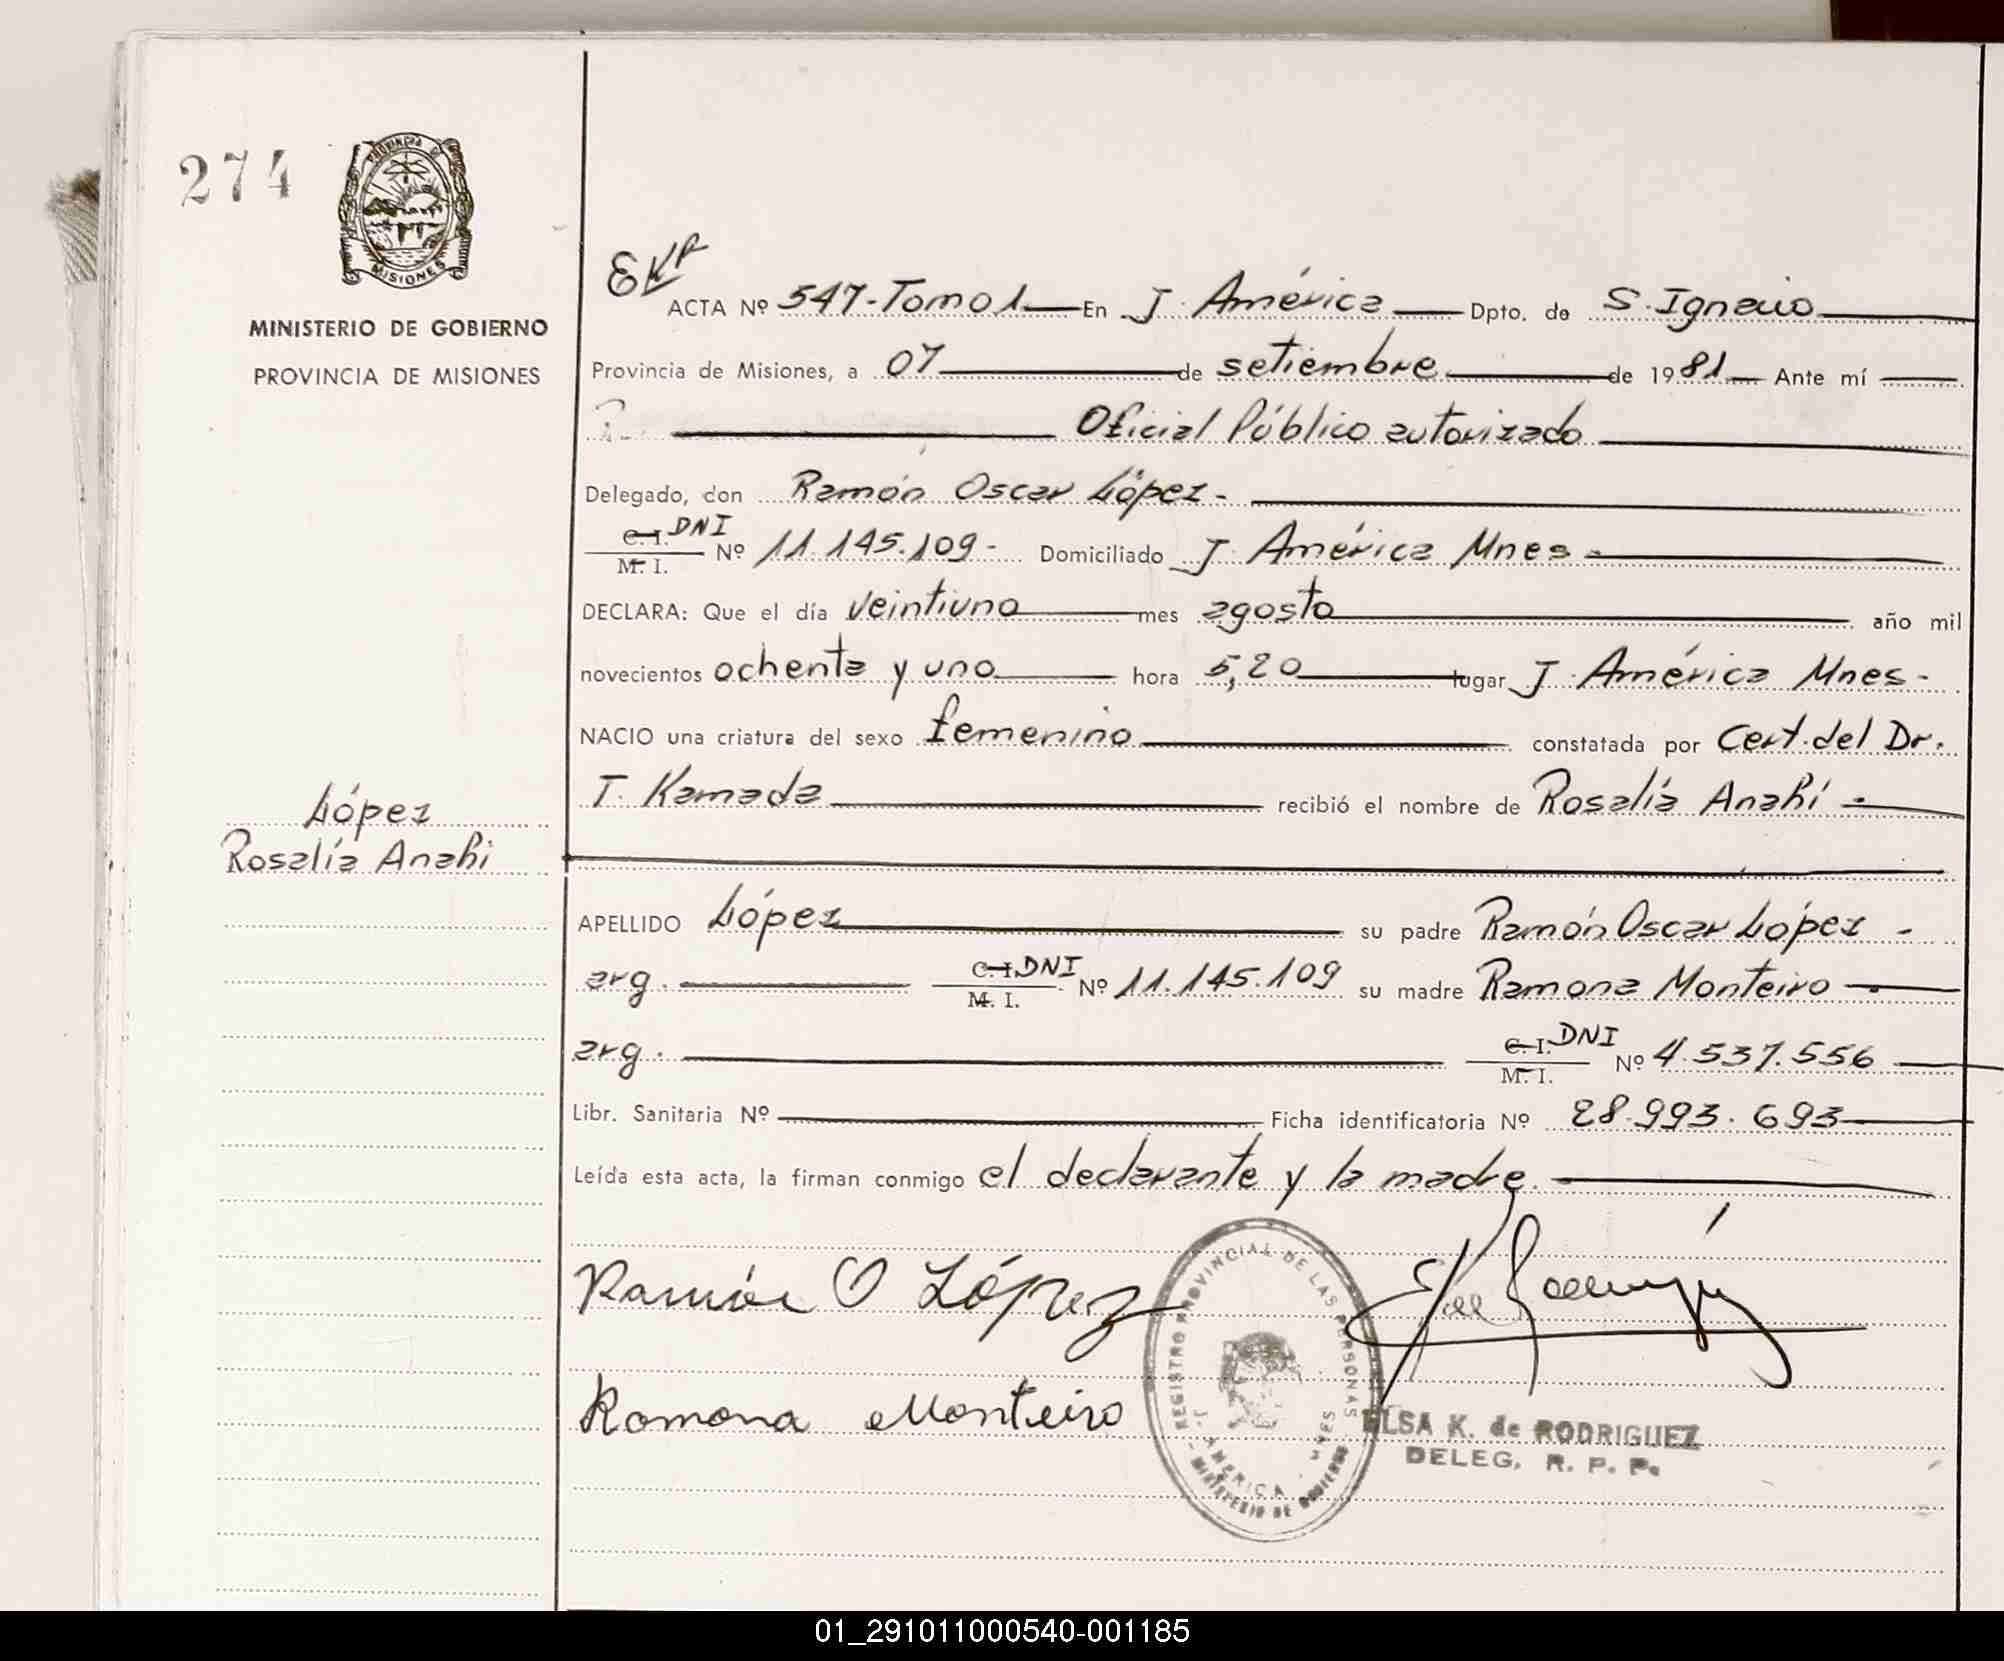 274
PROVINCIA DE
MISIONES
MINISTERIO DE GOBIERNO
PROVINCIA DE MISIONES
ACTA Nº 547-Tomo 1 En J. América Dpto. de S. Ignacio
Provincia de Misiones, a 07 de setiembre de 1981 Ante mí
Oficial Público autorizado
Delegado, don Ramón Oscar López -
C. I. DNI
M. I. Nº 11.145.109 - Domiciliado J. América Mnes -
DECLARA: Que el día veintiuno mes agosto año mil
novecientos ochenta y uno hora 5,20 lugar J. América Mnes -
NACIO una criatura del sexo femenino constatada por Cert. del Dr.
T. Kamada recibió el nombre de Rosalía Anahí -
López
Rosalía Anahi
APELLIDO López su padre Ramón Oscar López -
arg. C. I. DNI
M. I. Nº 11.145.109 su madre Ramona Monteiro
arg. C. I. DNI
M. I. Nº 4.537.556
Libr. Sanitaria Nº Ficha identificatoria Nº 28.993.693
Leída esta acta, la firman conmigo el declarante y la madre.
Ramón O López
Ramona Monteiro
REGISTRO PROVINCIAL DE LAS PERSONAS
J. AMERICA - MNES
MINISTERIO DE GOBIERNO
ELSA K. de RODRIGUEZ
DELEG. R. P. P.
01_291011000540-001185